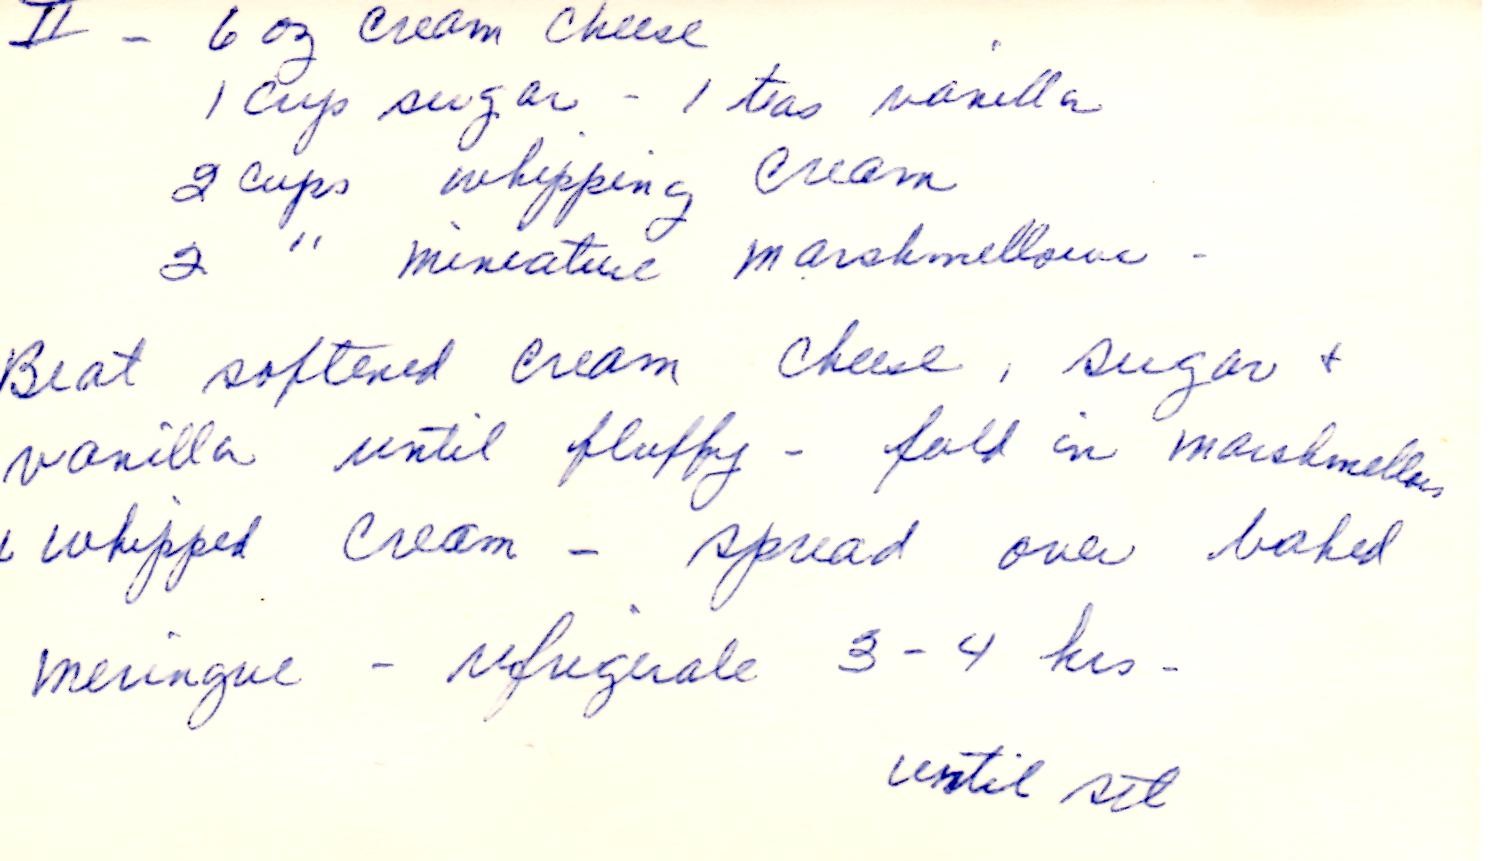 II - 6 oz cream cheese
1 cup sugar - 1 teas vanilla
2 cups whipping cream
2 " miniature marshmellows -
Beat softened cream cheese, sugar +
vanilla until fluffy - fold in marshmellows
& whipped cream - spread over baked
meringue - refrigerate 3-4 hrs -
until set